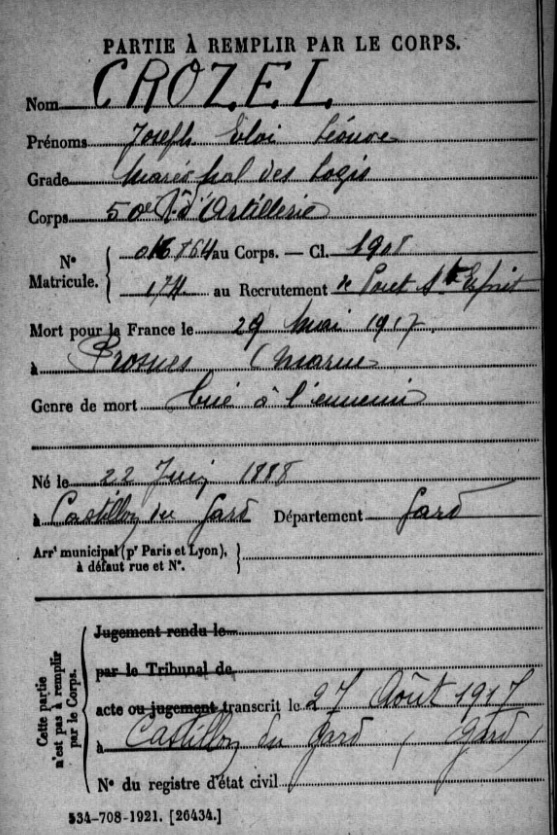 PARTIE À REMPLIR PAR LE CORPS.
Nom CROZEL
Prénoms Joseph Eloi Léonce
Grade Maréchal des Logis
Corps 50e Rt d'Artillerie
N° Matricule. au Corps. — Cl. 1908
174 au Recrutement de Pont St Esprit
Mort pour la France le 29 Mai 1917
à Prosnes (Marne
Genre de mort Tué à l'ennemi
Né le 22 Juin 1888
à Castillon du Gard Département Gard
Arrt municipal (pr Paris et Lyon),
à défaut rue et N°.
Cette partie n'est pas à remplir par le Corps.
Jugement rendu le
par le Tribunal de
acte ou jugement transcrit le 27 Août 1917
à Castillon du Gard (Gard)
N° du registre d'état civil
534-708-1921. [26434.]